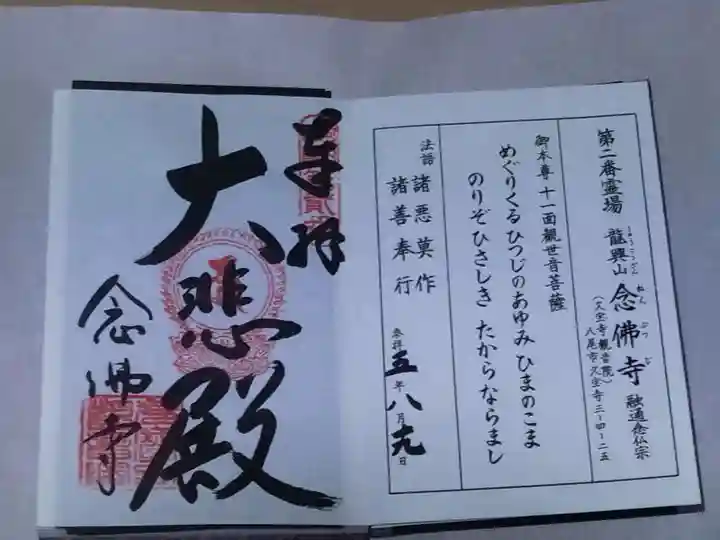 第二番霊場 龍興山 念佛寺 融通念仏宗
りゅうこうざん ねんぶつじ
(久宝寺観音院)
八尾市久宝寺三-四-二五
御本尊 十一面観世音菩薩
めぐりくるひつじのあゆみ ひまのこま
のりぞひさしき たからならまし
法語 諸悪莫作
諸善奉行
参拝 五年八月九日
奉拝
大悲殿
念佛寺